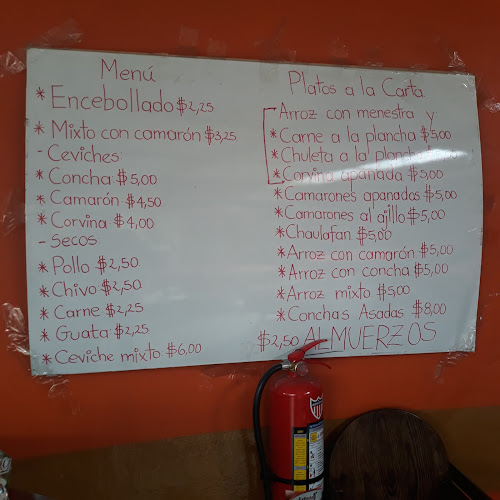 Menú
* Encebollado $2,25
* Mixto con camarón $3,25
- Ceviches
* Concha $5,00
* Camarón $4,50
* Corvina $4,00
- Secos
* Pollo $2,50
* Chivo $2,50
* Carne $2,25
* Guata $2,25
* Ceviche mixto $6,00
Platos a la Carta
Arroz con menestra y
* Carne a la plancha $5,00
* Chuleta a la plancha
* Corvina apanada $5,00
* Camarones apanados $5,00
* Camarones al ajillo $5,00
* Chaulafan $5,00
* Arroz con camarón $5,00
* Arroz con concha $5,00
* Arroz mixto $5,00
* Conchas Asadas $8,00
$2,50 ALMUERZOS